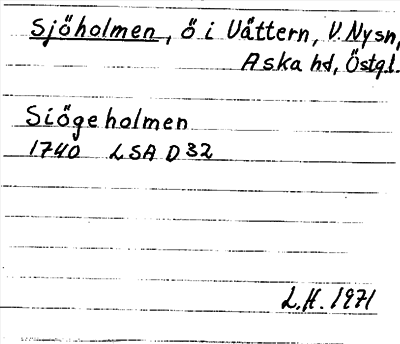 Sjöholmen, ö i Vättern, V. Nysn,
Aska hd, Östgl.
Siögeholmen
1740 LSA D32
L.H. 1971